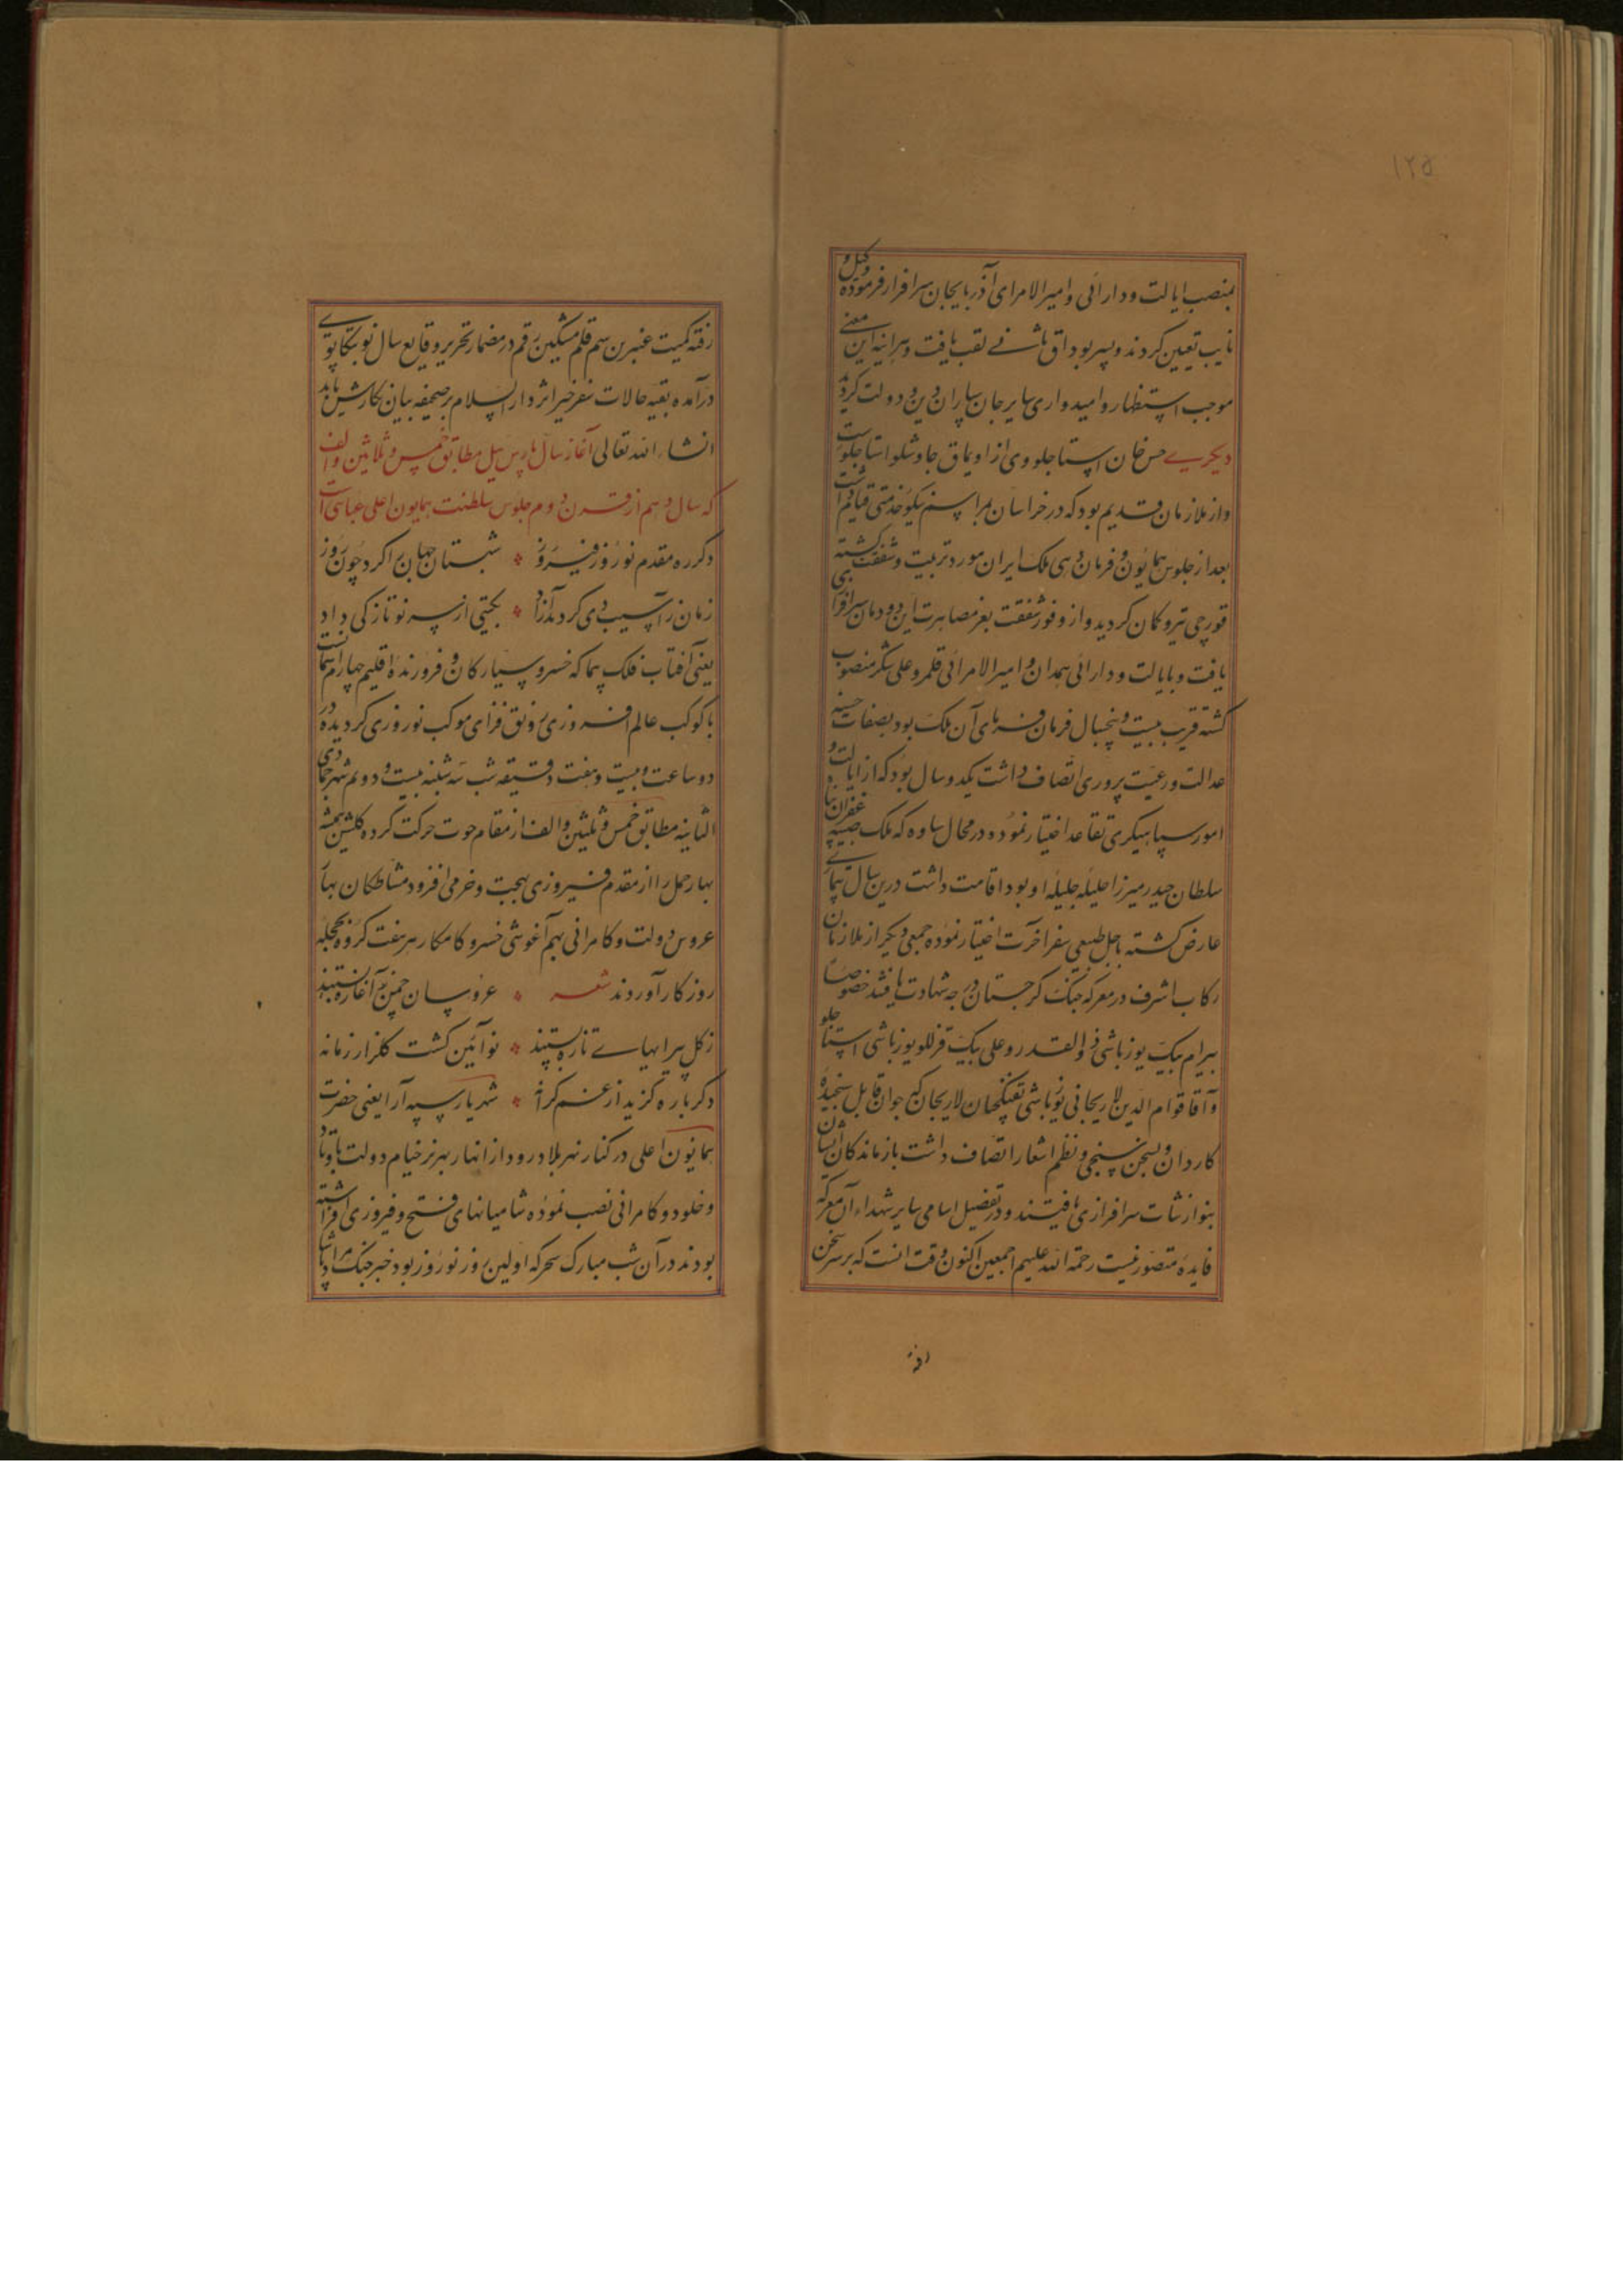 ۱۲۵
بمنصب ایالت و دارائی و امیرالامرای آذربایجان سرافراز فرموده وکیل و
نایب تعیین کردند و پسر بوداق باشی لقب یافت و هرآینه این معنی
موجب استظهار و امیدواری سایر جان سپاران دین و دولت کردید
دیکری حسن خان استاجلو وی از اویماق جاوشلو استاجلوست
و از ملازمان قدیم بود که در خراسان بمراسم نیکو خدمتی قیام داشت
بعد از جلوس همایون و فرمان دهی ملک ایران مورد تربیت و شفقت کشته
قورچی تیر و کمان کردید و از وفور شفقت بعز مصاهرت این دودمان سرافرازی
یافت و بایالت و دارائی همدان و امیرالامرائی قلمرو علی شکر منصوب
کشته قریب بیست و پنجسال فرمان فرمای آن ملک بود بصفات حسنه
عدالت و رعیت پروری اتصاف داشت یکدو سال بود که از ایالت و
امور سپاهیکری تقاعد اختیار نموده در محال ساوه که ملک صبیه غفران پناه
سلطان حیدر میرزا حلیله جلیله او بود اقامت داشت درین سال بیماری
عارض کشته باجل طبیعی سفر آخرت اختیار نموده جمعی دیکر از ملازمان
رکاب اشرف در معرکه جنک کرجستان درجه شهادت یافتند خصوصا
بیرام بیک یوزباشی ذوالقدر و علی بیک قزللو یوزباشی استاجلو
و آقا قوام الدین لاریجانی یوزباشی تفنکچیان لاریجان که جوان قابل سنجیده
کاردان و بسخن سنجی و نظم اشعار اتصاف داشت بازماندکان ایشان
بنوازشات سرافرازی یافتند و در تفصیل اسامی سایر شهداء آن معرکه
فایده متصور نیست رحمة الله علیهم اجمعین اکنون وقت انست که بر سر سخن
رفته
رفته کمیت عنبرین سم قلم مشکین رقم در مضمار تحریر وقایع سال نو بتکاپوی
درآمده بقیه حالات سفر خیر اثر دارالسلام بر صحیفه بیان نکارش یابد
انشاءالله تعالی آغاز سال بارس ئیل مطابق خمس و ثلاثین و الف
که سال دهم از قرن دوم جلوس سلطنت همایون اعلی عباسی است
دکرره مقدم نوروز فیروز * شبستان جهان را کرد چون روز
زمان را ز آسیب دی کرد آزاد * بکیتی از سر نو تازکی داد
یعنی آفتاب فلک پیما که خسرو سیارکان و فروزنده اقلیم چهارم سماست
با کوکب عالم افروزی رونق فزای موکب نوروزی کردیده در
دو ساعت و بیست و هفت دقیقه شب سه شنبه بیست و دویم شهر جمادی
الثانیه مطابق خمس و ثلثین و الف از مقام حوت حرکت کرده کلشن همیشه
بهار حمل را از مقدم فیروزی بهجت و خرمی افزود مشاطکان بهار
عروس دولت و کامرانی بهم آغوشی خسرو کامکار هر هفت کرده بحجله
روزکار آوردند شعر * عروسان چمن را غازه بستند
ز کل پیرایهای تازه بستند * نو آئین کشت کلزار زمانه
دکرباره کزید از عزم کرانه * شهریار سپه آرا یعنی حضرت
همایون اعلی در کنار نهر بلادرود از انهار بهرز خیام دولت باوتاد
و خلود و کامرانی نصب نموده شامیانهای فتح و فیروزی افراشته
بودند در آن شب مبارک سحر که اولین روز نوروز بود خبر جنک مراد پاشا